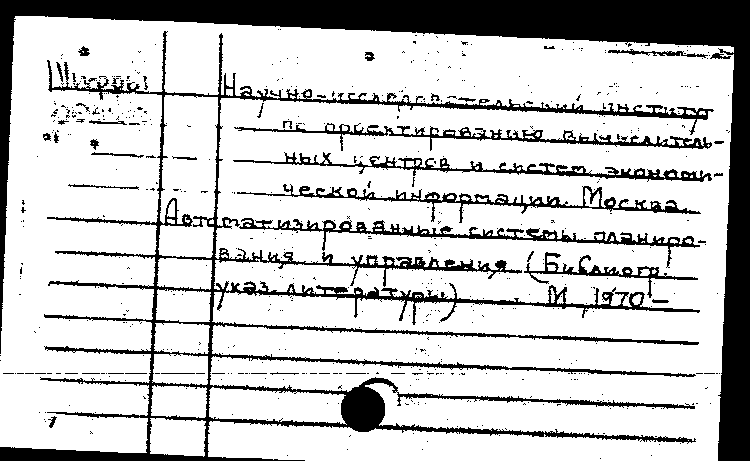 Шифры
Научно-исследовательский институт
по проектированию вычислитель-
ных центров и систем экономи-
ческой информации. Москва.
Автоматизированные системы планиро-
вания и управления (Библиогр.
указ. литературы) М., 1970 –